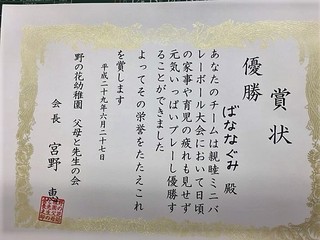 賞状
優勝
ばななぐみ 殿
あなたのチームは親睦ミニバ
レーボール大会において日頃
の家事や育児の疲れも見せず
元気いっぱいプレーし優勝す
ることができました
よってその栄誉をたたえこれ
を賞します
平成二十九年六月二十七日
野の花幼稚園 父母と先生の会
会長 宮野 恵